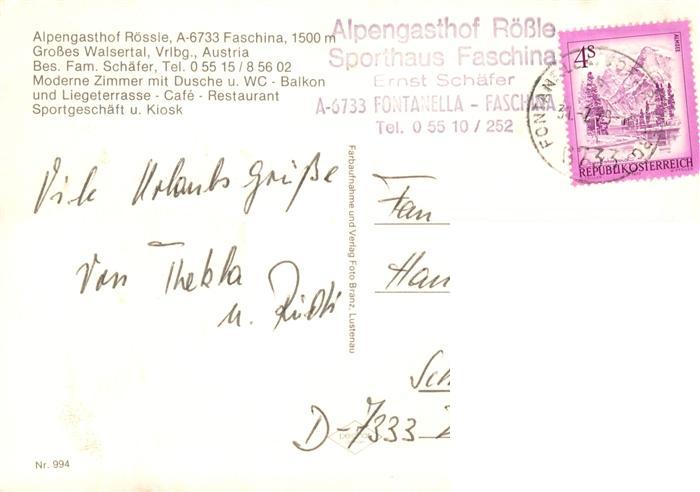 Alpengasthof Rössle, A-6733 Faschina, 1500 m
Großes Walsertal, Vrlbg., Austria
Bes. Fam. Schäfer, Tel. 0 55 15 / 8 56 02
Moderne Zimmer mit Dusche u. WC - Balkon
und Liegeterrasse - Café - Restaurant
Sportgeschäft u. Kiosk
Alpengasthof Rößle
Sporthaus Faschina
Ernst Schäfer
A-6733 FONTANELLA - FASCHINA
Tel. 0 55 10 / 252
4S
ALMSEE
REPUBLIK ÖSTERREICH
6733
Viele Urlaubs Grüße
von Thekla
u. Rudi
Farbaufnahme und Verlag Foto Branz, Lustenau
Fam
Han
Sch
D-7333
Nr. 994